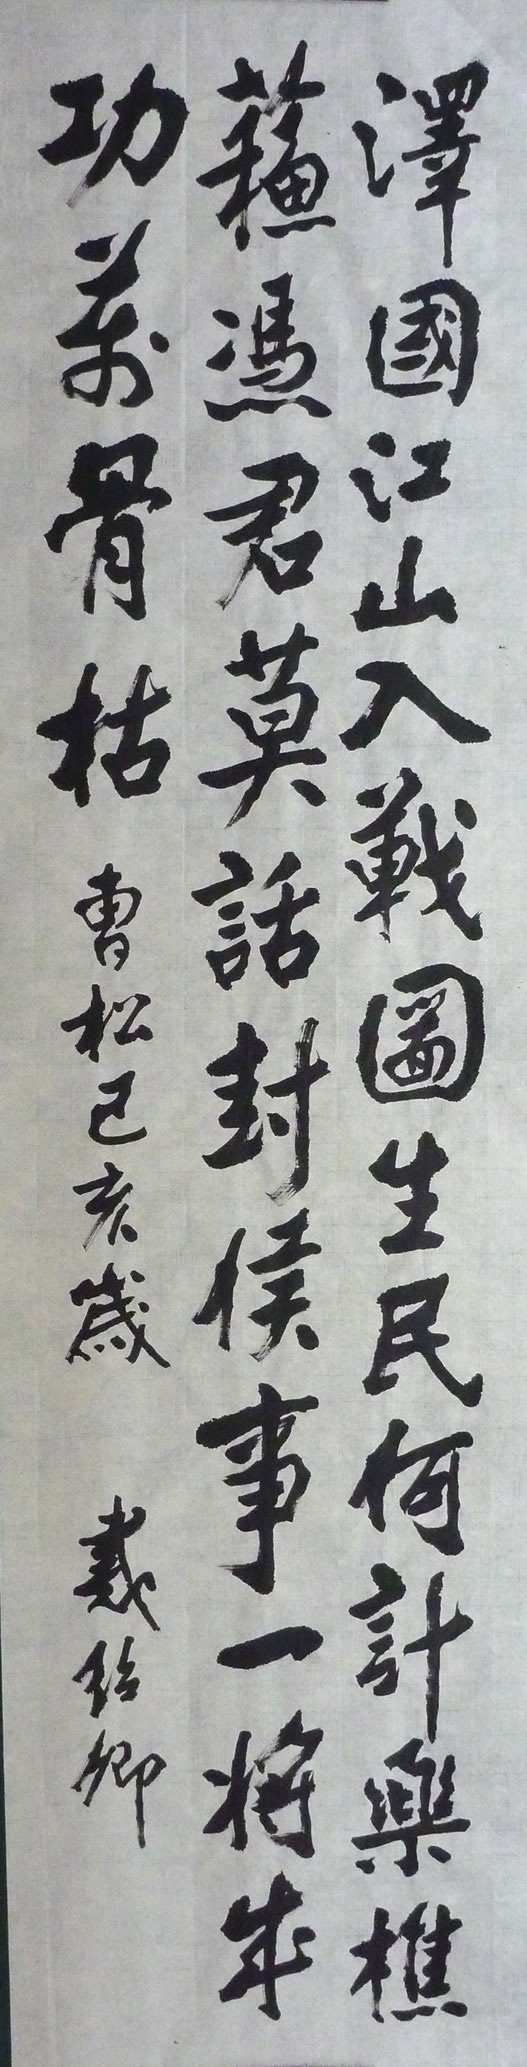 澤國江山入戰圖生民何計樂樵
蘓憑君莫話封侯事一將成
功萬骨枯 曹松己亥歲 戴紹卿